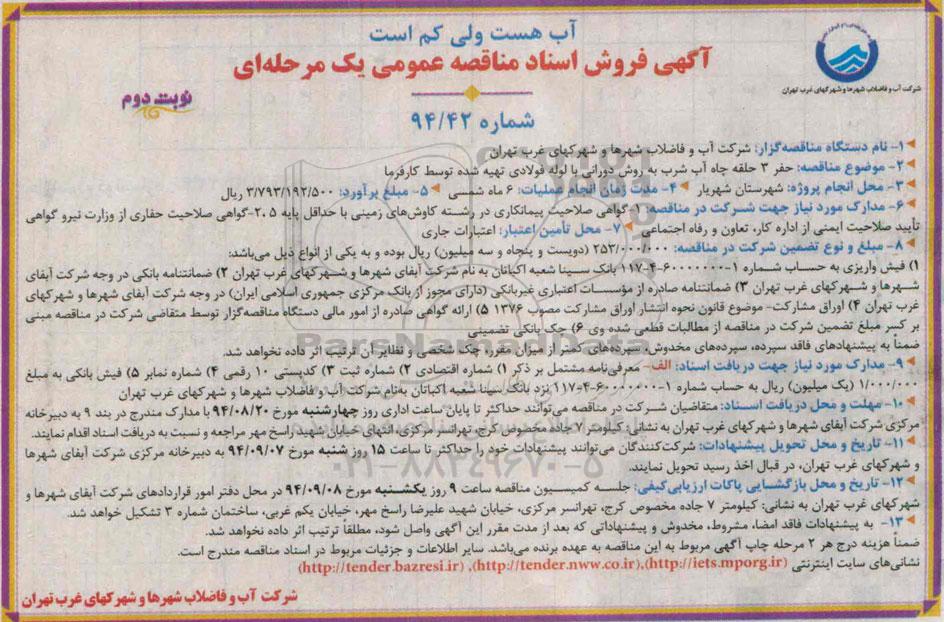 آب هست ولی کم است
آگهی فروش اسناد مناقصه عمومی یک مرحله‌ای
شرکت آب و فاضلاب شهرها و شهرکهای غرب تهران
نوبت دوم
شماره ۹۴/۴۲
۱- نام دستگاه مناقصه‌گزار: شرکت آب و فاضلاب شهرها و شهرکهای غرب تهران
۲- موضوع مناقصه: حفر ۳ حلقه چاه آب شرب به روش دورانی با لوله فولادی تهیه شده توسط کارفرما
۳- محل انجام پروژه: شهرستان شهریار ۴- مدت زمان انجام عملیات: ۶ ماه شمسی ۵- مبلغ برآورد: ۳/۷۹۳/۱۹۲/۵۰۰ ریال
۶- مدارک مورد نیاز جهت شرکت در مناقصه: ۱-گواهی صلاحیت پیمانکاری در رشته کاوش‌های زمینی با حداقل پایه ۵ .۲-گواهی صلاحیت حفاری از وزارت نیرو گواهی
تأیید صلاحیت ایمنی از اداره کار، تعاون و رفاه اجتماعی ۷- محل تأمین اعتبار: اعتبارات جاری
۸- مبلغ و نوع تضمین شرکت در مناقصه: ۲۵۳/۰۰۰/۰۰۰ (دویست و پنجاه و سه میلیون) ریال بوده و به یکی از انواع ذیل می‌باشد:
۱) فیش واریزی به حساب شماره ۱-۶۰۰۰۰۰۰۰-۴-۱۱۷ بانک سینا شعبه اکباتان به نام شرکت آبفای شهرها و شهرکهای غرب تهران ۲) ضمانتنامه بانکی در وجه شرکت آبفای
شهرها و شهرکهای غرب تهران ۳) ضمانتنامه صادره از مؤسسات اعتباری غیربانکی (دارای مجوز از بانک مرکزی جمهوری اسلامی ایران) در وجه شرکت آبفای شهرها و شهرکهای
غرب تهران ۴) اوراق مشارکت- موضوع قانون نحوه انتشار اوراق مشارکت مصوب ۱۳۷۶ ۵) ارائه گواهی صادره از امور مالی دستگاه مناقصه‌گزار توسط متقاضی شرکت در مناقصه مبنی
بر کسر مبلغ تضمین شرکت در مناقصه از مطالبات قطعی شده وی ۶) چک بانکی تضمینی
ضمناً به پیشنهادهای فاقد سپرده، سپرده‌های مخدوش، سپرده‌های کمتر از میزان مقرر، چک شخصی و نظایر آن ترتیب اثر داده نخواهد شد.
۹- مدارک مورد نیاز جهت دریافت اسناد: الف- معرفی‌نامه مشتمل بر ذکر ۱) شماره اقتصادی ۲) شماره ثبت ۳) کدپستی ۱۰ رقمی ۴) شماره نمابر ۵) فیش بانکی به مبلغ
۱/۰۰۰/۰۰۰ (یک میلیون) ریال به حساب شماره ۱-۶۰۰۰۰۰۰۰-۴-۱۱۷ نزد بانک سینا شعبه اکباتان به‌نام شرکت آب و فاضلاب شهرها و شهرکهای غرب تهران
۱۰- مهلت و محل دریافت اسناد: متقاضیان شرکت در مناقصه می‌توانند حداکثر تا پایان ساعت اداری روز چهارشنبه مورخ ۹۴/۰۸/۲۰ با مدارک مندرج در بند ۹ به دبیرخانه
مرکزی شرکت آبفای شهرها و شهرکهای غرب تهران به نشانی: کیلومتر ۷ جاده مخصوص کرج، تهرانسر مرکزی، انتهای خیابان شهید راسخ مهر مراجعه و نسبت به دریافت اسناد اقدام نمایند.
۱۱- تاریخ و محل تحویل پیشنهادات: شرکت‌کنندگان می‌توانند پیشنهادات خود را حداکثر تا ساعت ۱۵ روز شنبه مورخ ۹۴/۰۹/۰۷ به دبیرخانه مرکزی شرکت آبفای شهرها
و شهرکهای غرب تهران، در قبال اخذ رسید تحویل نمایند.
۱۲- تاریخ و محل بازگشایی پاکات ارزیابی‌کیفی: جلسه کمیسیون مناقصه ساعت ۹ روز یکشنبه مورخ ۹۴/۰۹/۰۸ در محل دفتر امور قراردادهای شرکت آبفای شهرها و
شهرکهای غرب تهران به نشانی: کیلومتر ۷ جاده مخصوص کرج، تهرانسر مرکزی، خیابان شهید علیرضا راسخ مهر، خیابان یکم غربی، ساختمان شماره ۳ تشکیل خواهد شد.
۱۳- به پیشنهادات فاقد امضا، مشروط، مخدوش و پیشنهاداتی که بعد از مدت مقرر این آگهی واصل شود، مطلقاً ترتیب اثر داده نخواهد شد.
ضمناً هزینه درج هر ۲ مرحله چاپ آگهی مربوط به این مناقصه به عهده برنده می‌باشد. سایر اطلاعات و جزئیات مربوط در اسناد مناقصه مندرج است.
نشانی‌های سایت اینترنتی (http://iets.mporg.ir)، (http://tender.nww.co.ir)، (http://tender.bazresi.ir)
شرکت آب و فاضلاب شهرها و شهرکهای غرب تهران
ParsNamadData
۰۲۱-۸۸۳۴۹۶۷۰-۵